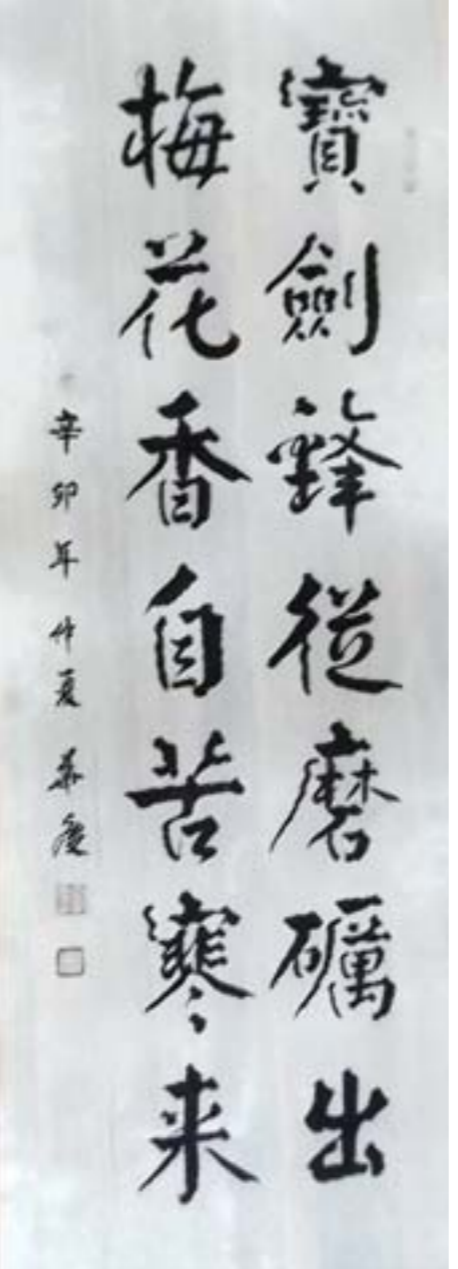 寶劍鋒從磨礪出
梅花香自苦寒来
辛卯年仲夏